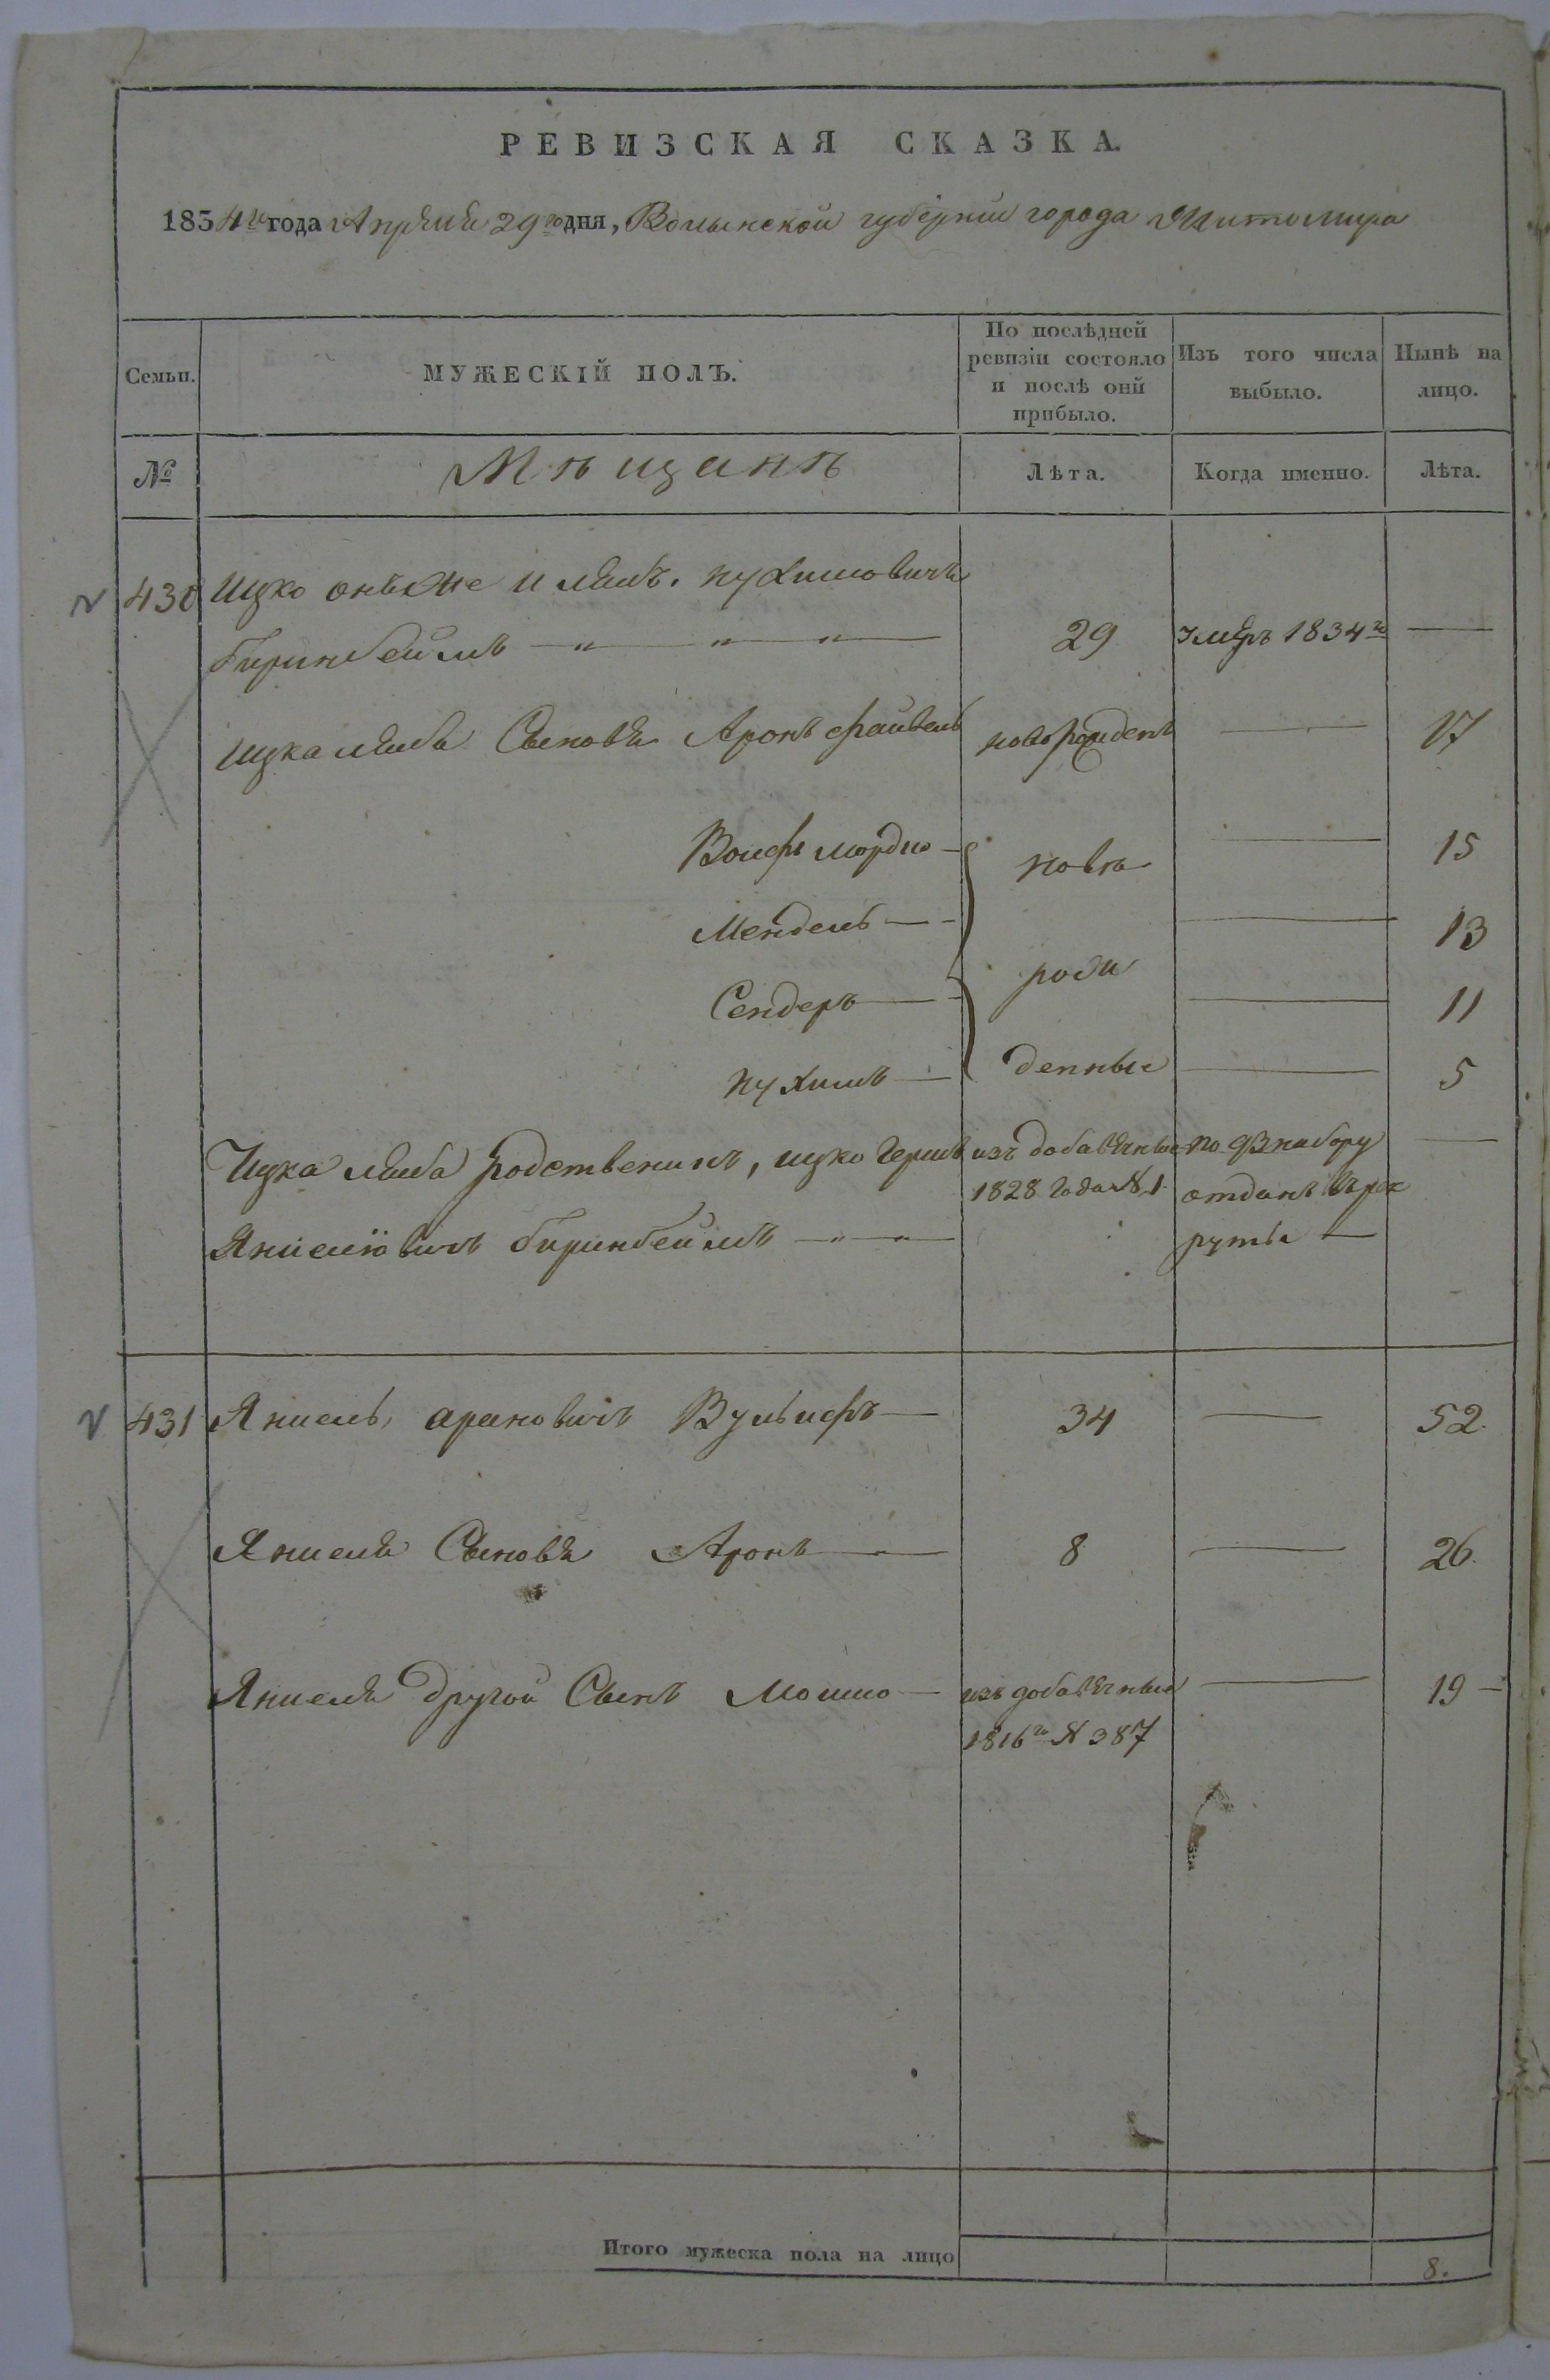 РЕВИЗСКАЯ СКАЗКА.
1834го года Апреля 29го дня, Волынской губернии города Житомира
Семьи.
МУЖЕСКІЙ ПОЛЪ.
По послѣдней ревизіи состояло и послѣ онй прибыло.
Изъ того числа выбыло.
Нынѣ на лицо.
№
Мѣщанѣ
Лѣта.
Когда именно.
Лѣта.
430 Ицко онъ же и Лейбъ Нухимовичъ
Биринбеймъ 29 умеръ 1834го —
Ицка Лейба Сыновя Аронъ Файвель новорожденъ — 17
Вольфъ Мордко — 15
Мендель — 13
Сендеръ — 11
Нухимъ — 5
новорожденные
Ицка Лейба родственикъ, Ицко Герш изъ добавочныхъ по набору —
1828 года №1. отданъ въ рек
Янкелiовичъ Биринбеймъ руты —
431 Янкель Ароновичъ Вульифъ — 34 — 52.
Янкеля Сыновя Аронъ — 8 — 26.
Янкеля другой Сынъ Мошко — изъ добавочных — 19 —
1816го № 387
Итого мужеска пола на лицо 8.